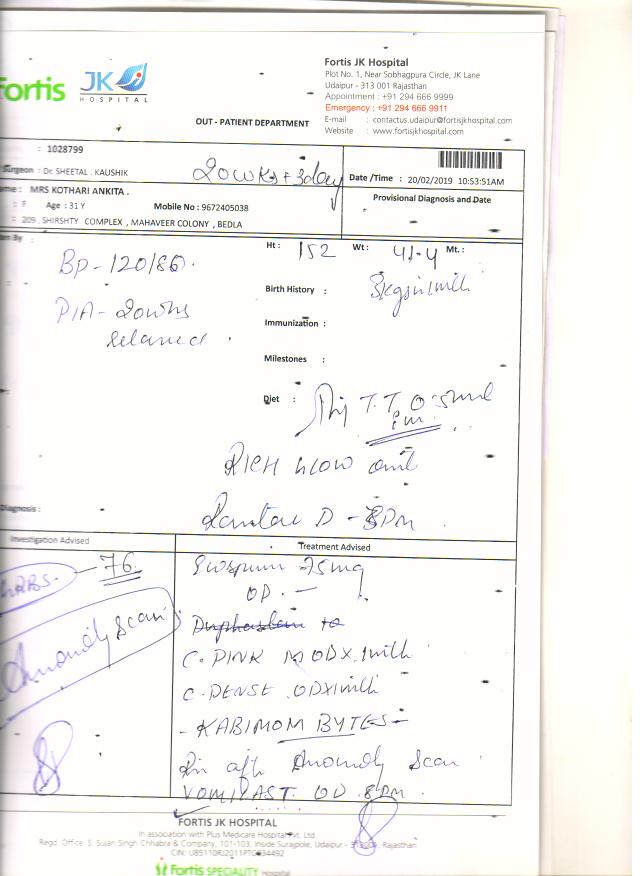 Fortis JK
HOSPITAL
Fortis JK Hospital
Plot No. 1, Near Sobhagpura Circle, JK Lane
Udaipur - 313 001 Rajasthan
Appointment : +91 294 666 9999
Emergency : +91 294 666 9911
E-mail : contactus.udaipur@fortisjkhospital.com
Website : www.fortisjkhospital.com
OUT - PATIENT DEPARTMENT
: 1028799
Surgeon : Dr. SHEETAL . KAUSHIK
20wks+3day
Date /Time : 20/02/2019 10:53:51AM
ame : MRS KOTHARI ANKITA .
: F Age : 31 Y Mobile No : 9672405038
Provisional Diagnosis and Date
: 209 , SHIRSHTY COMPLEX , MAHAVEER COLONY , BEDLA
en By :
Ht : 152 Wt : 41.4 Mt. :
BP - 120/80.
Birth History :
P/A - 20wks
relaxed
Immunization :
Milestones :
Diet :
Inj T.T 0.5ml
I/m
RICH
D - 8PM
Diagnosis :
Investigation Advised
Treatment Advised
76
Ecosprin 75mg
OD. -
Anomaly Scan
Duphaston
C. PINK M ODX 1mth
C. DENSE ODX1mth
- KABIMOM BYTES -
R/v aft Anomaly Scan
VOMILAST OD 8PM.
FORTIS JK HOSPITAL
In association with Plus Medicare Hospital Pvt. Ltd.
Regd. Office: S. Sujan Singh Chhabra & Company, 101-103, Inside Surajpole, Udaipur - 313001, Rajasthan
CIN: U85110RJ2011PTC034492
Fortis SPECIALITY Hospital